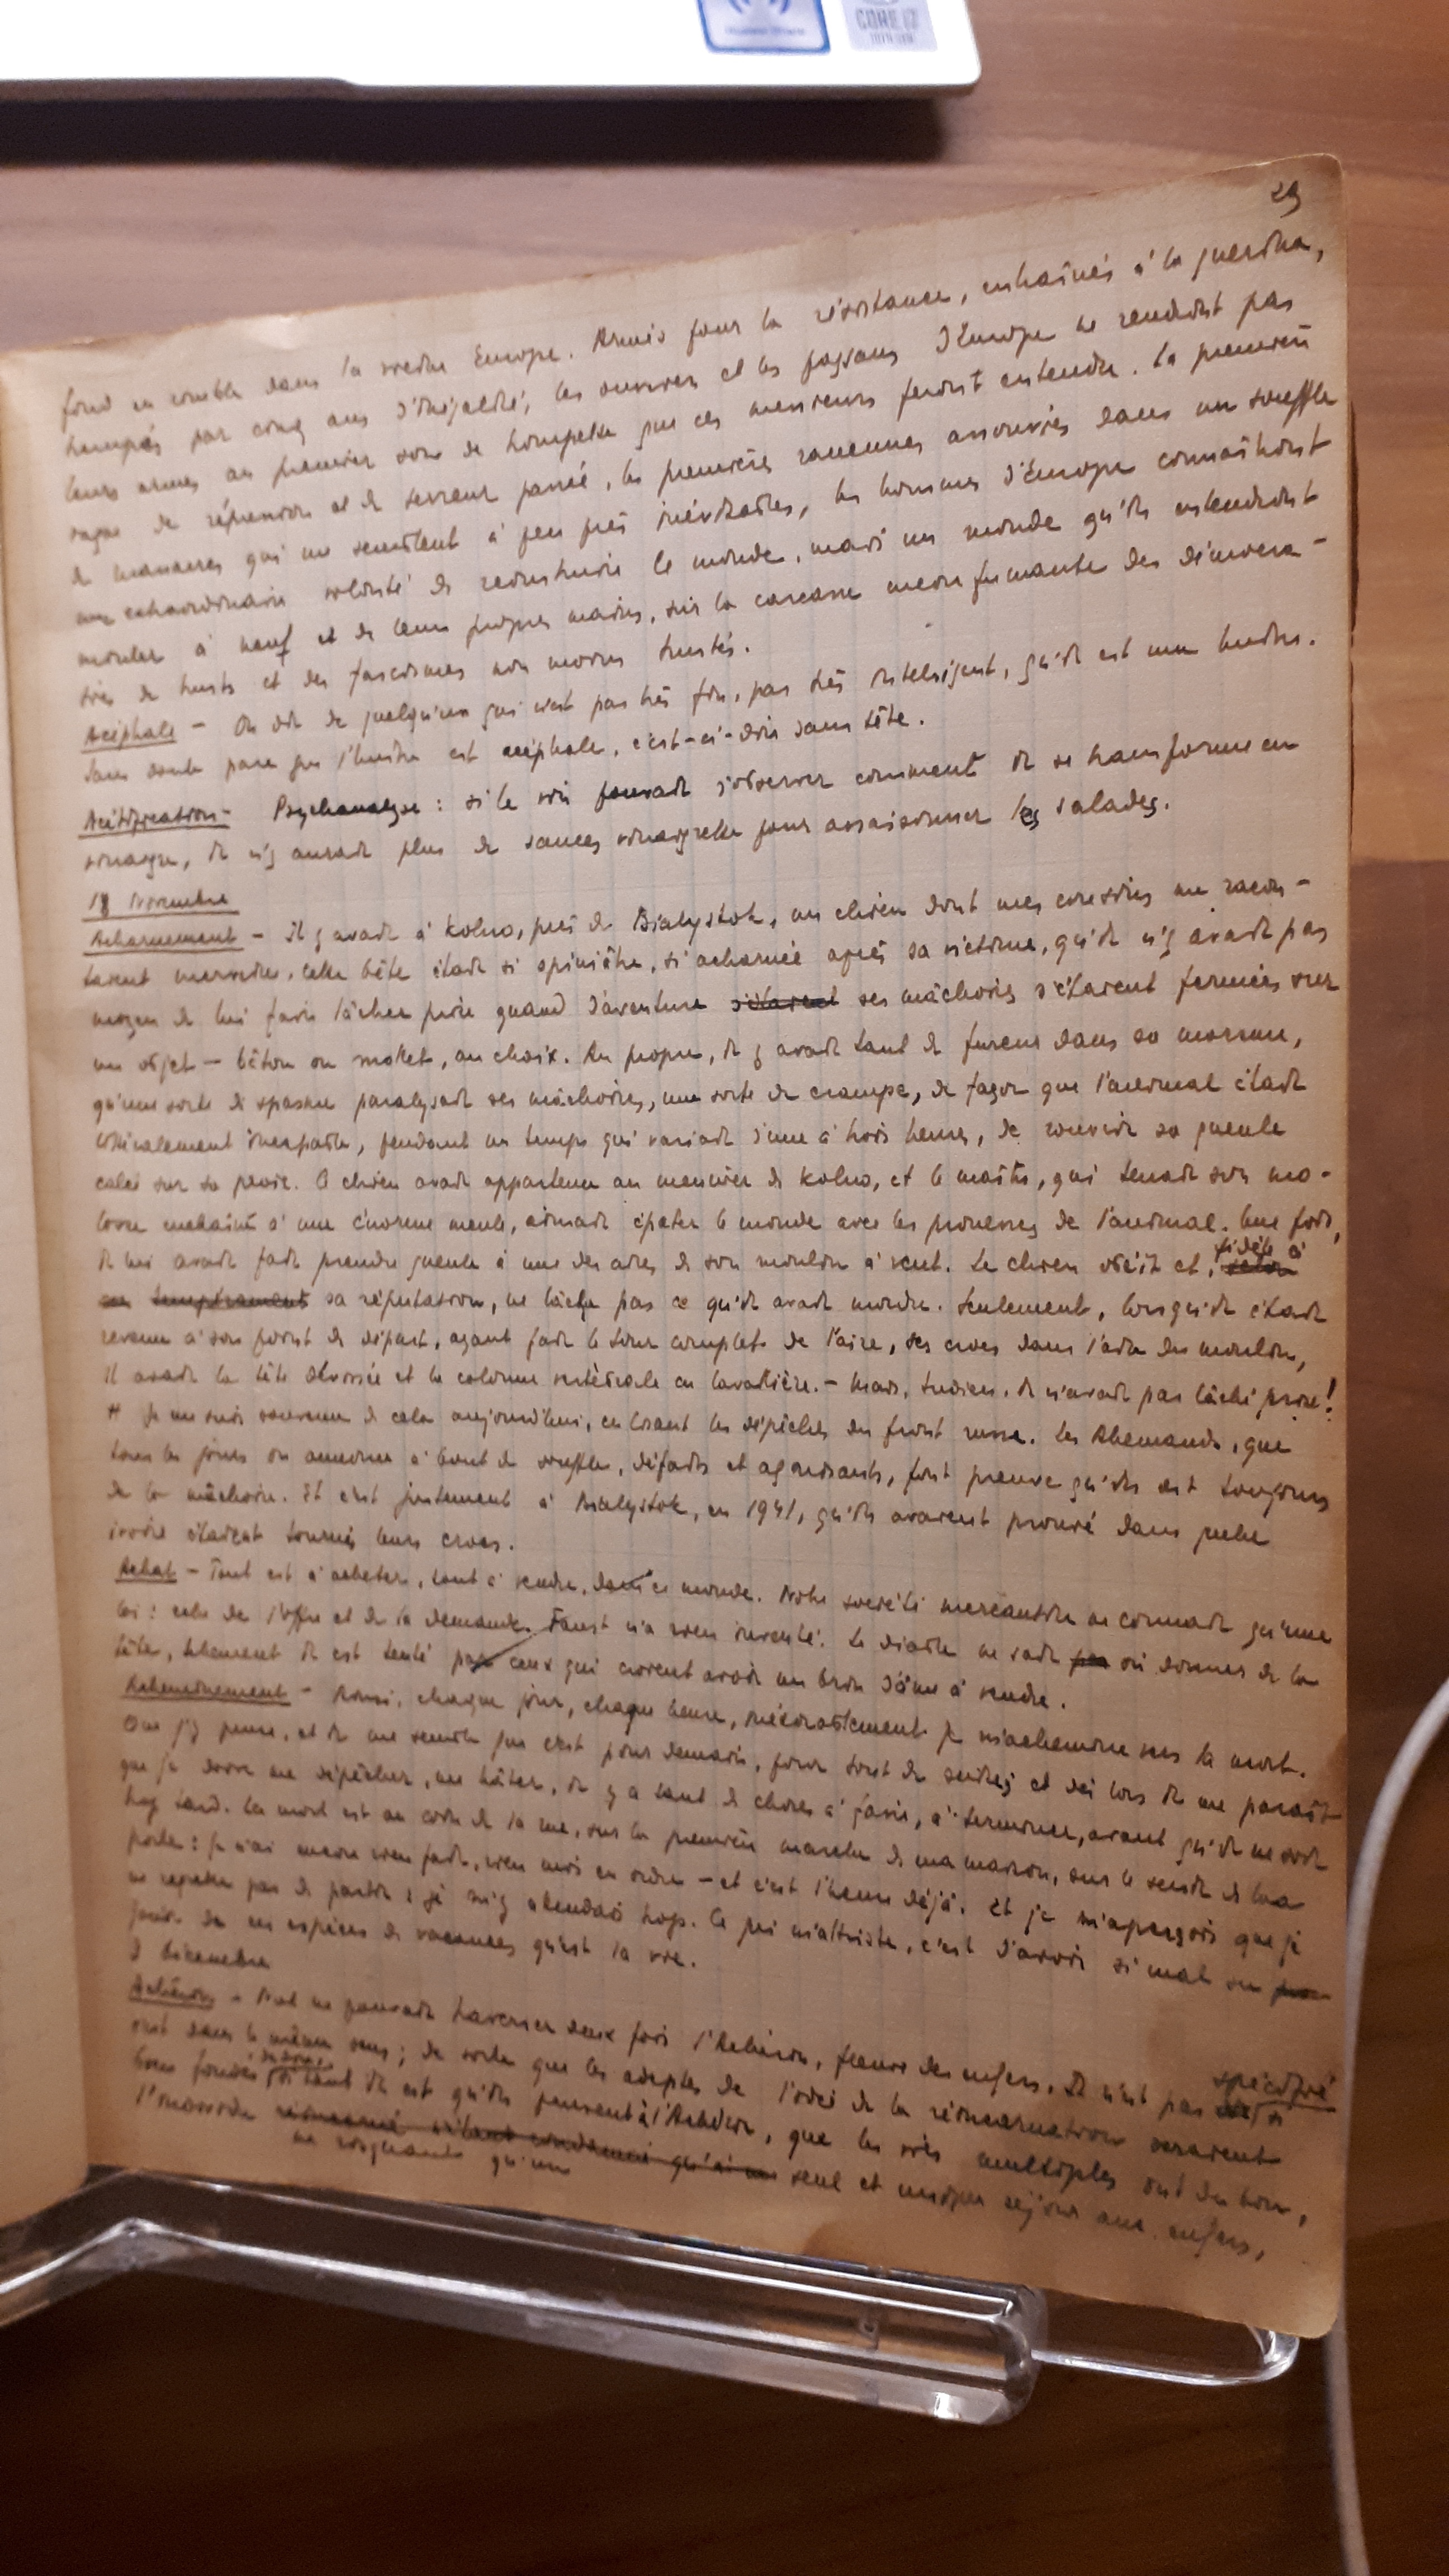 CORE i7
29
fond en comble dans la vieille Europe. Armés pour la résistance, entraînés à la guerilla,
trempés par cinq ans d'illégalité, les ouvriers et les paysans d'Europe ne rendront pas
leurs armes au premier son de trompette que ces messieurs feront entendre. La première
vague de répression et de terreur passée, les premières rancunes assouvies dans un souffle
de massacres qui me semblent à peu près inévitables, les hommes d'Europe connaîtront
une extraordinaire volonté de reconstruire le monde, mais un monde qu'ils entendront
monter à neuf et de leurs propres mains, sur la carcasse encore fumante des démocra-
ties de trusts et des fascismes non moins trustés.
Acéphale - On dit de quelqu'un qui n'est pas très fin, pas très intelligent, qu'il est une huître.
Sans doute parce que l'huître est acéphale, c'est-à-dire sans tête.
Acétification - Psychanalyse : si le vin pouvait s'observer comment il se transforme en
vinaigre, il n'y aurait plus de sauces vinaigrette pour assaisonner les salades.
18 Novembre
Acharnement - Il y avait à Kolno, près de Bialystok, un chien dont mes coreligionnaires me racon-
taient merveilles. Cette bête était si opiniâtre, si acharnée après sa victime, qu'il n'y avait pas
moyen de lui faire lâcher prise quand d'aventure s'étaient ses mâchoires s'étaient fermées sur
un objet - bâton ou mollet, au choix. Au propre, il y avait tant de fureur dans sa morsure,
qu'une sorte de spasme paralysait ses mâchoires, une sorte de crampe, de façon que l'animal était
littéralement incapable, pendant un temps qui variait d'une à trois heures, de rouvrir sa gueule
calée sur sa proie. Ce chien avait appartenu au meunier de Kolno, et le maître, qui tenait son mo-
losse enchaîné à une énorme meule, aimait épater le monde avec les prouesses de l'animal. Une fois,
il lui avait fait prendre gueule à une des ailes de son moulin à vent. Le chien obéit et, selon fidèle à
son tempérament sa réputation, ne lâcha pas ce qu'il avait mordu. Seulement, lorsqu'il était
revenu à son point de départ, ayant fait le tour complet de l'aire, ses crocs dans l'aile du moulin,
Il avait la tête dévissée et la colonne vertébrale en lavallière. - Mais, tudieu, il n'avait pas lâché prise!
# Je me suis souvenu de cela aujourd'hui, en lisant les dépêches du front russe. Les Allemands, que
tous les jours on annonce à bout de souffle, défaits et agonisants, font preuve qu'ils ont toujours
de la mâchoire. Et c'est justement à Bialystok, en 1941, qu'ils avaient prouvé dans quel
ivoire étaient tournés leurs crocs.
Achat - Tout est à acheter, tout à vendre, dans ce monde. Notre société mercantile ne connait qu'une
loi : celle de l'offre et de la demande. Faust n'a rien inventé. Le diable ne sait pas où donner de la
tête, tellement il est tenté par ceux qui croient avoir un brin d'âme à vendre.
Acheminement - Ainsi, chaque jour, chaque heure, inéluctablement je m'achemine vers la mort.
Que j'y pense, et il me semble que c'est pour demain, pour tout de suite; et dès lors il me paraît
que je doive me dépêcher, me hâter, il y a tant de choses à faire, à terminer, avant qu'il ne soit
trop tard. La mort est au coin de la rue, sur la première marche de ma maison, sur le seuil de ma
porte : je n'ai encore rien fait, rien mis en ordre - et c'est l'heure déjà. Et je m'aperçois que je
ne regrette pas de partir : je m'y attendais trop. Ce qui m'attriste, c'est d'avoir si mal su
jouir de ces espèces de vacances qu'est la vie.
2 Décembre
Achéron - Nul ne pouvait traverser deux fois l'Achéron, fleuve des enfers. Il n'est pas spécifié si
soit dans le même sens; de sorte que les adeptes de l'idée de la réincarnation seraient
bien fondés, tant il est qu'ils pensent à l'Achéron, que les vies multiples ont du bon,
l'immortel ne risquant qu'un seul et unique séjour aux enfers,